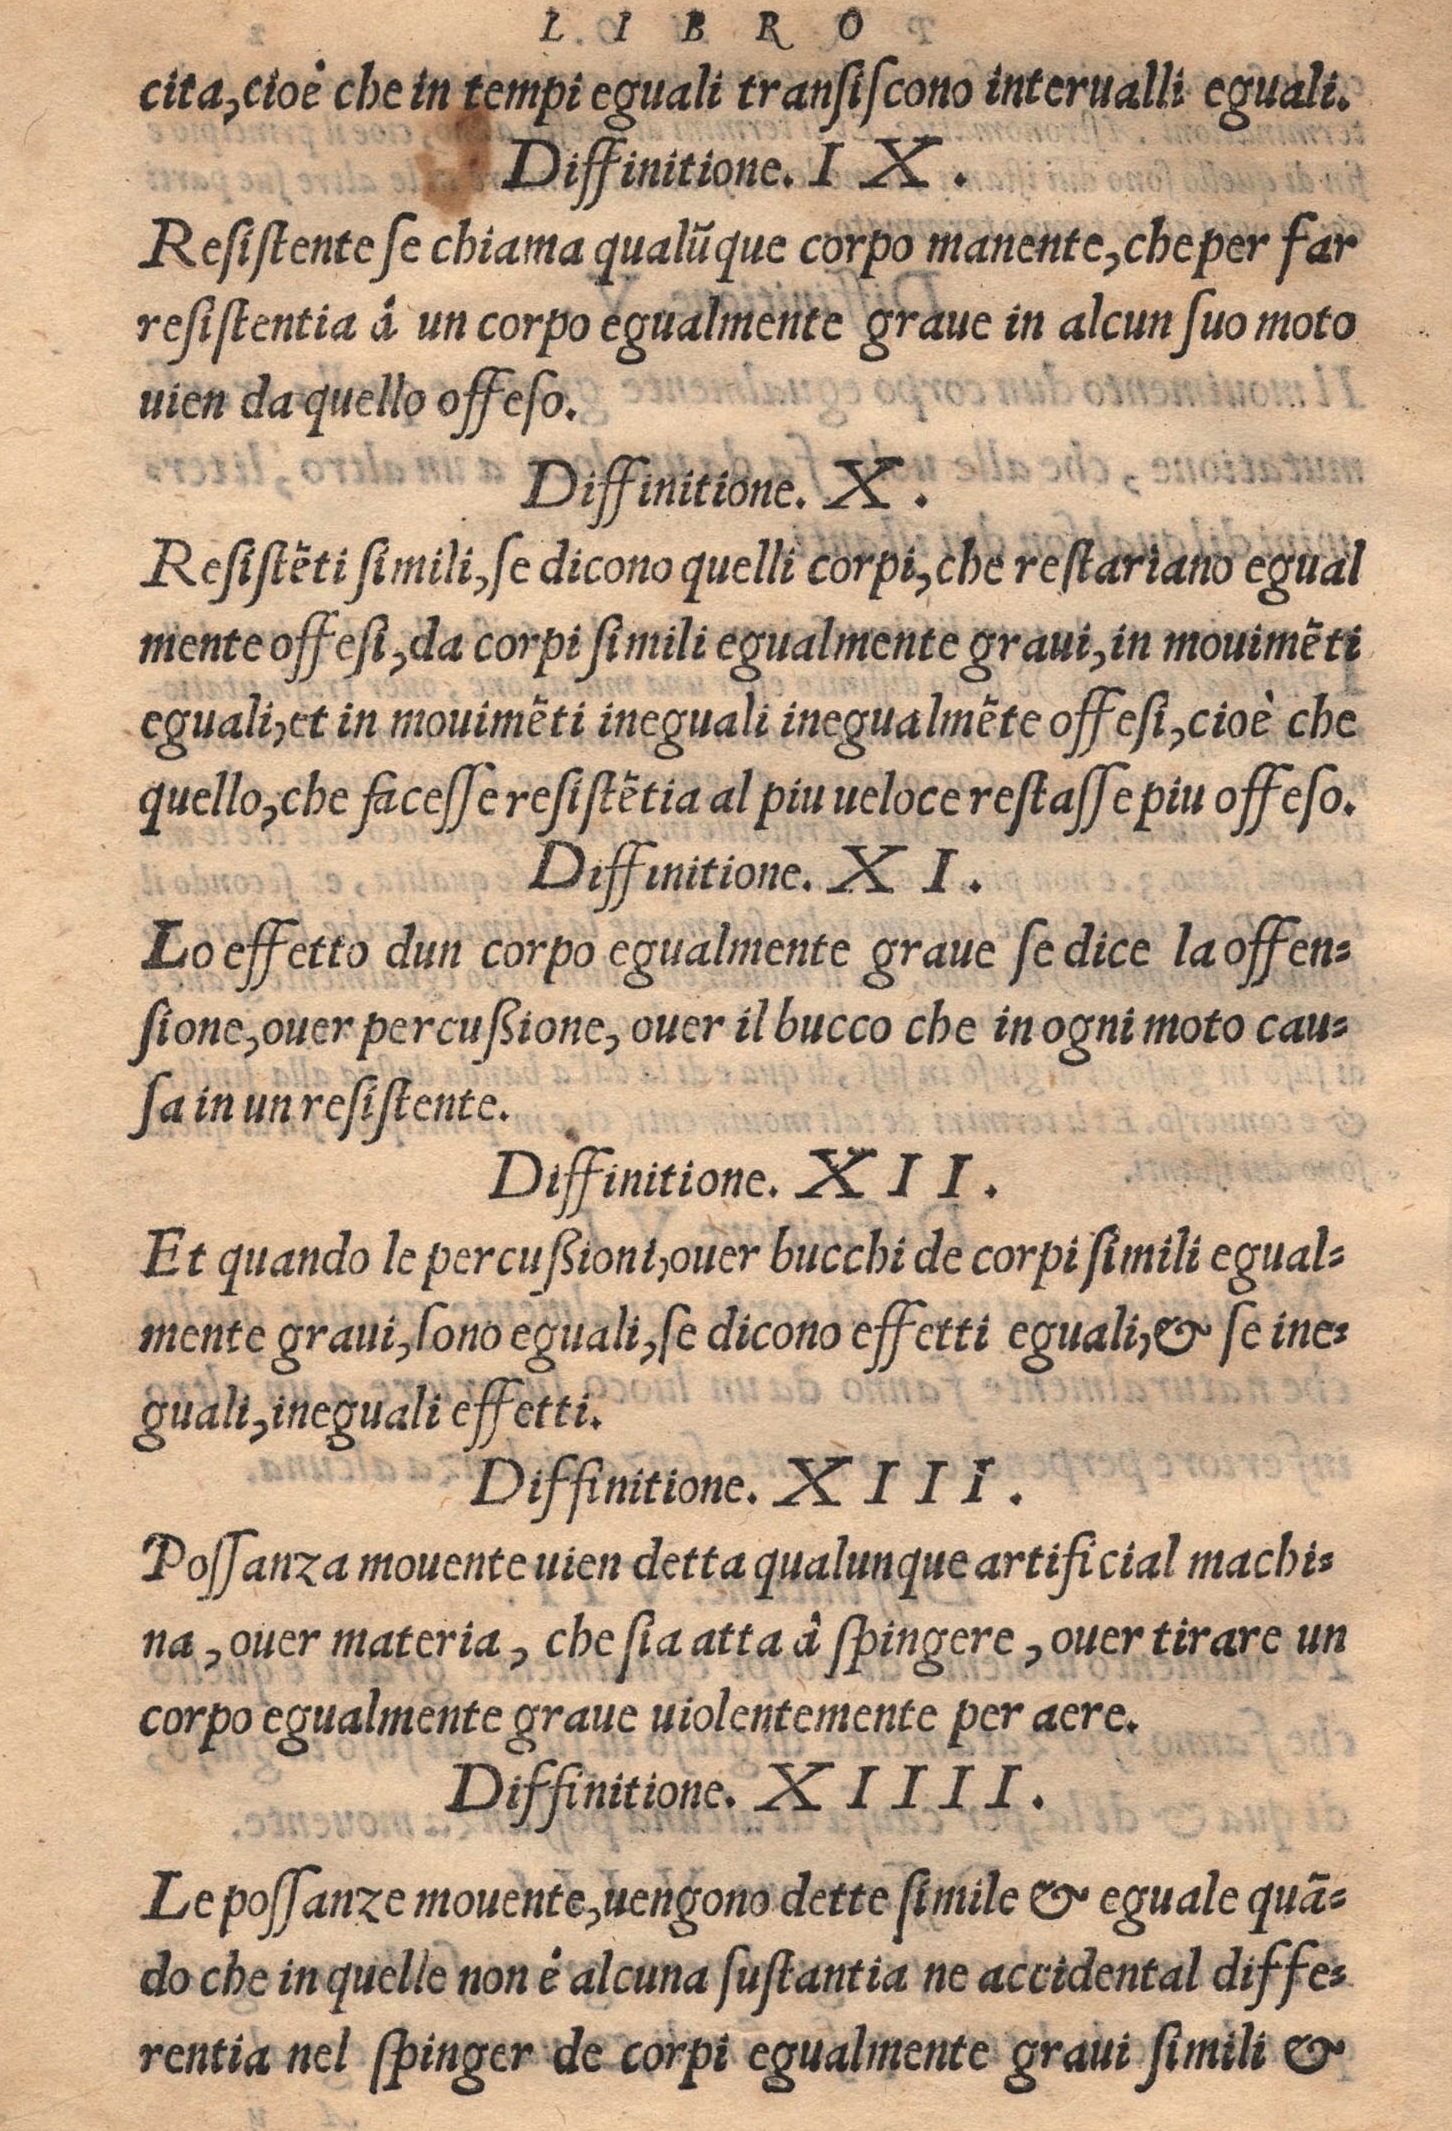 L I B R O
cita, cioè che in tempi eguali transiſcono interualli eguali.
Diffinitione. I X.
Reſiſtente ſe chiama qualũque corpo manente, che per far
reſiſtentia â un corpo egualmente graue in alcun ſuo moto
uien da quello offeſo.
Diffinitione. X.
Reſiſtẽti ſimili, ſe dicono quelli corpi, che reſtariano egual
mente offeſi, da corpi ſimili egualmente graui, in mouimẽti
eguali, et in mouimẽti ineguali inegualmẽte offeſi, cioè che
quello, che faceſſe reſiſtẽtia al piu ueloce reſtaſſe piu offeſo.
Diffinitione. X I.
Lo effetto dun corpo egualmente graue ſe dice la offen=
ſione, ouer percußione, ouer il bucco che in ogni moto cau=
ſa in un reſiſtente.
Diffinitione. X I I.
Et quando le percußioni, ouer bucchi de corpi ſimili egual=
mente graui, ſono eguali, ſe dicono effetti eguali, & ſe ine=
guali, ineguali effetti.
Diffinitione. X I I I.
Poſſanza mouente uien detta qualunque artificial machi=
na, ouer materia, che ſia atta â ſpingere, ouer tirare un
corpo egualmente graue uiolentemente per aere.
Diffinitione. X I I I I.
Le poſſanze mouente, uengono dette ſimile & eguale quã=
do che in quelle non è alcuna ſuſtantia ne accidental diffe=
rentia nel ſpinger de corpi egualmente graui ſimili &